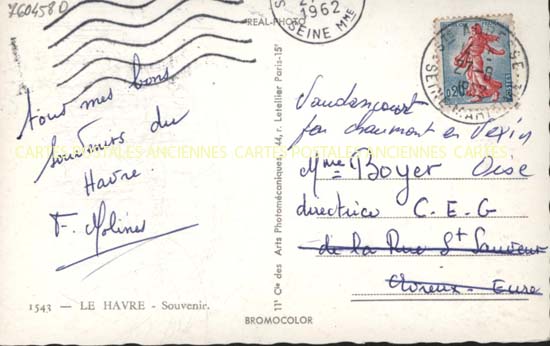 760458D
1962
SEINE Mme
REAL-PHOTO
0,20
tous mes bons
souvenirs du
Havre.
F. Molines
1543 — LE HAVRE - Souvenir.
11 Cie des Arts Photomécaniques, 44, r. Letellier Paris-15e
BROMOCOLOR
Vaudancourt
par Chaumont en Vexin
Oise
Mme Boyer
directrice C.E.G
de la Rue St Sauveur
Evreux - Eure
CARTES POSTALES ANCIENNES CARTES POSTALES ANCIENNES CARTES